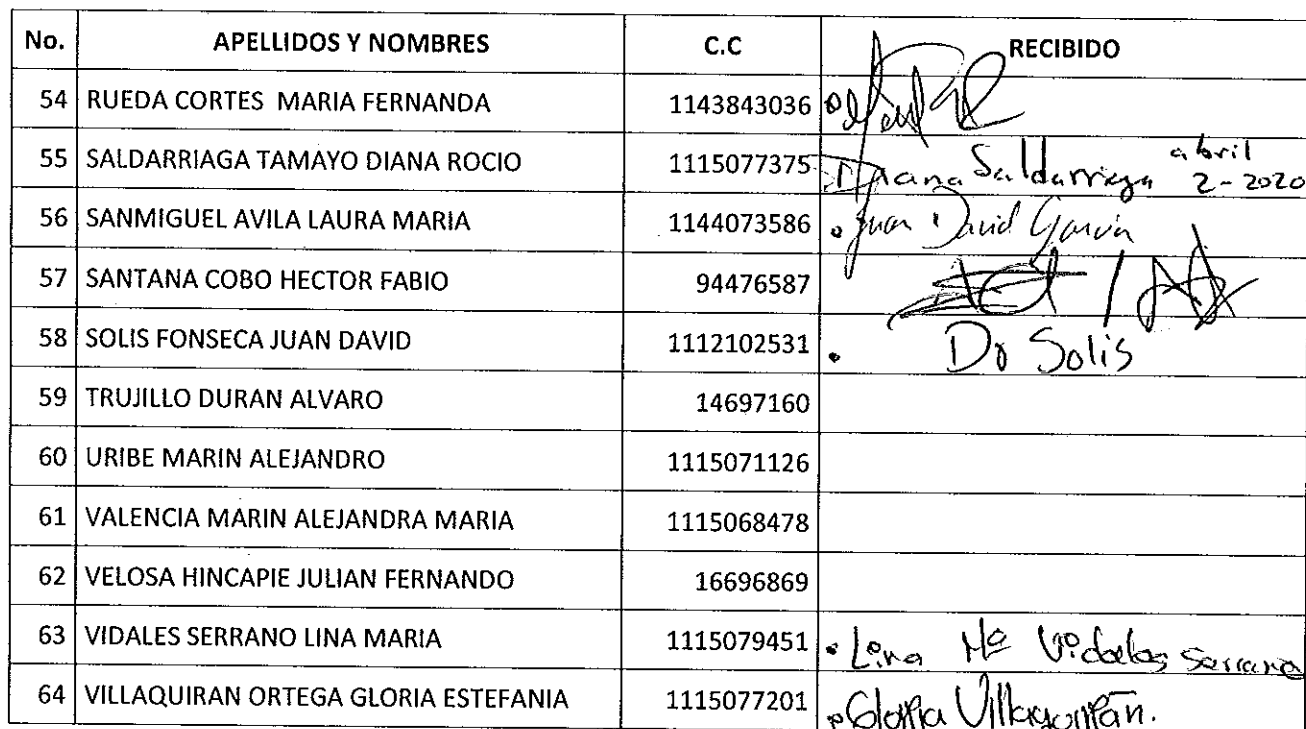 No. APELLIDOS Y NOMBRES C.C RECIBIDO
54 RUEDA CORTES MARIA FERNANDA 1143843036
55 SALDARRIAGA TAMAYO DIANA ROCIO 1115077375 Diana Saldarriaga abril 2-2020
56 SANMIGUEL AVILA LAURA MARIA 1144073586 Juan David
57 SANTANA COBO HECTOR FABIO 94476587
58 SOLIS FONSECA JUAN DAVID 1112102531 Dr Solis
59 TRUJILLO DURAN ALVARO 14697160
60 URIBE MARIN ALEJANDRO 1115071126
61 VALENCIA MARIN ALEJANDRA MARIA 1115068478
62 VELOSA HINCAPIE JULIAN FERNANDO 16696869
63 VIDALES SERRANO LINA MARIA 1115079451 Lina Mª Vidales Serrano
64 VILLAQUIRAN ORTEGA GLORIA ESTEFANIA 1115077201 Gloria Villaquirán.